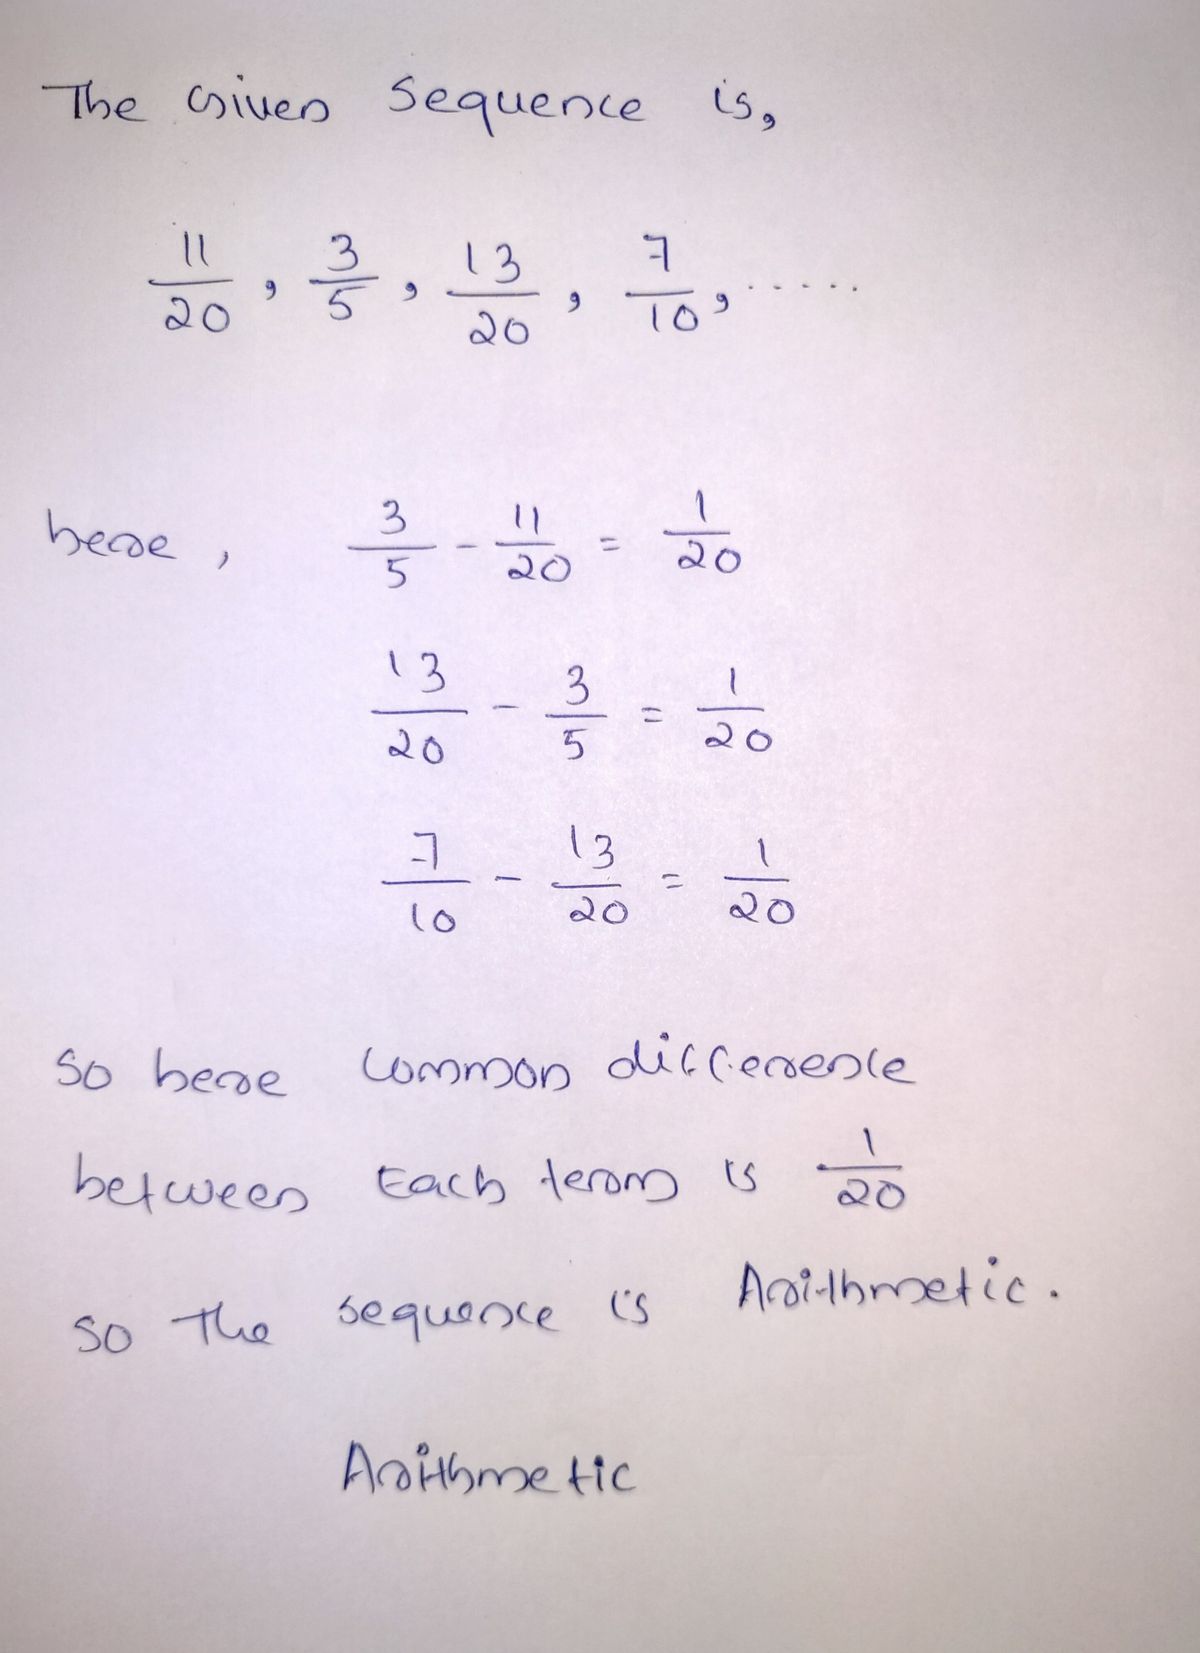 The Given Sequence is,
11/20, 3/5, 13/20, 7/10, .....
here, 3/5 - 11/20 = 1/20
13/20 - 3/5 = 1/20
7/10 - 13/20 = 1/20
so here common difference
between Each term is 1/20
so The sequence is Arithmetic.
Arithmetic